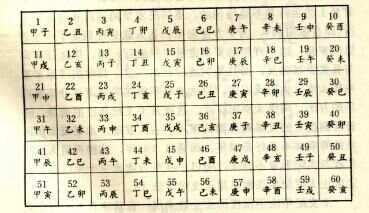 1 2 3 4 5 6 7 8 9 10
甲子 乙丑 丙寅 丁卯 戊辰 己巳 庚午 辛未 壬申 癸酉
11 12 13 14 15 16 17 18 19 20
甲戌 乙亥 丙子 丁丑 戊寅 己卯 庚辰 辛巳 壬午 癸未
21 22 23 24 25 26 27 28 29 30
甲申 乙酉 丙戌 丁亥 戊子 己丑 庚寅 辛卯 壬辰 癸巳
31 32 33 34 35 36 37 38 39 40
甲午 乙未 丙申 丁酉 戊戌 己亥 庚子 辛丑 壬寅 癸卯
41 42 43 44 45 46 47 48 49 50
甲辰 乙巳 丙午 丁未 戊申 己酉 庚戌 辛亥 壬子 癸丑
51 52 53 54 55 56 57 58 59 60
甲寅 乙卯 丙辰 丁巳 戊午 己未 庚申 辛酉 壬戌 癸亥